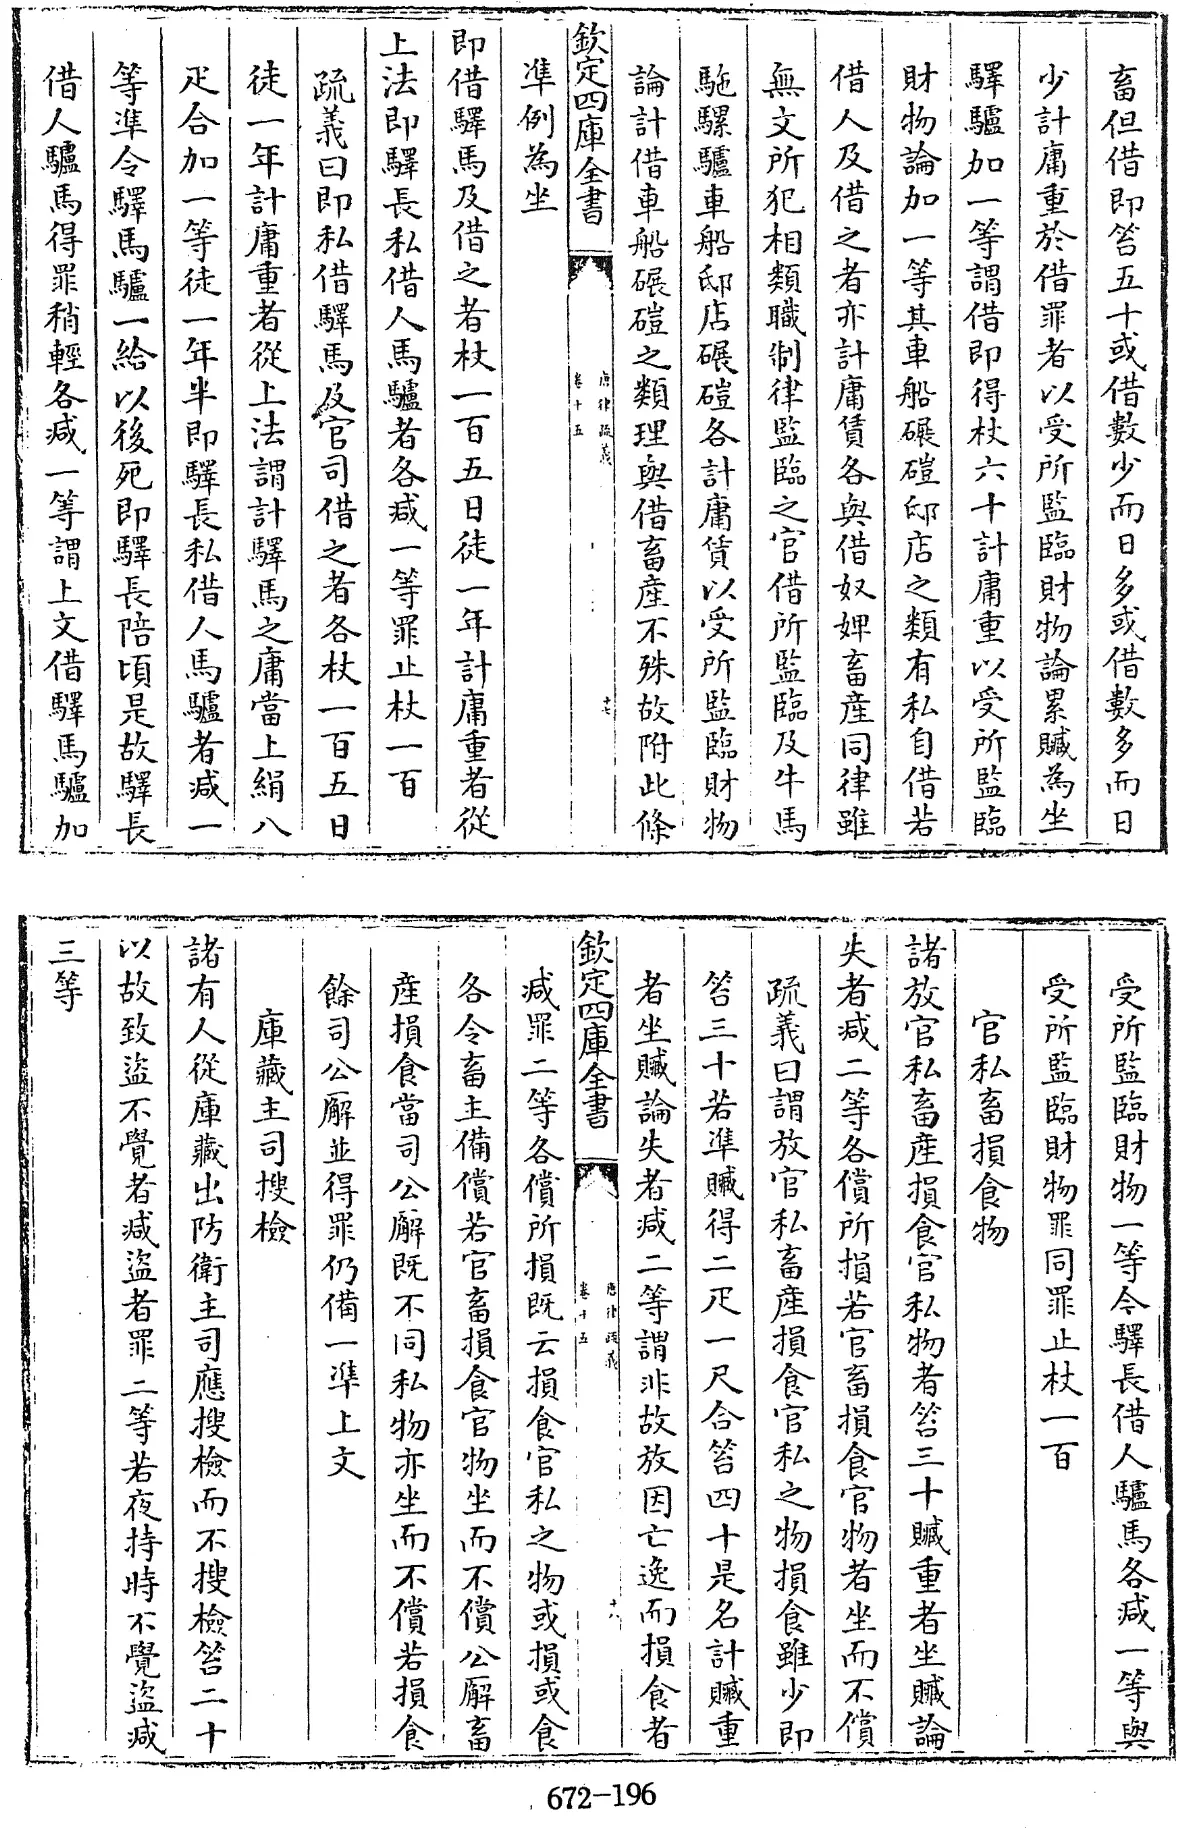 畜但借即笞五十或借數少而日多或借數多而日
少計庸重於借罪者以受所監臨財物論累贓為坐
驛驢加一等謂借即得杖六十計庸重以受所監臨
財物論加一等其車船碾磑邸店之類有私自借若
借人及借之者亦計庸賃各與借奴婢畜產同律雖
無文所犯相類職制律監臨之官借所監臨及牛馬
駞騾驢車船邸店碾磑各計庸賃以受所監臨財物
論計借車船碾磑之類理與借畜産不殊故附此條
欽定四庫全書
唐律疏義
卷十五
十七
凖例為坐
即借驛馬及借之者杖一百五日徒一年計庸重者從
上法即驛長私借人馬驢者各減一等罪止杖一百
疏義曰即私借驛馬及官司借之者各杖一百五日
徒一年計庸重者從上法謂計驛馬之庸當上絹八
疋合加一等徒一年半即驛長私借人馬驢者減一
等凖令驛馬驢一給以後死即驛長陪填是故驛長
借人驢馬得罪稍輕各減一等謂上文借驛馬驢加
受所監臨財物一等今驛長借人驢馬各減一等與
受所監臨財物罪同罪止杖一百
官私畜損食物
諸放官私畜産損食官私物者笞三十贓重者坐贓論
失者減二等各償所損若官畜損食官物者坐而不償
疏義曰謂放官私畜産損食官私之物損食雖少即
笞三十若凖贓得二疋一尺合笞四十是名計贓重
者坐贓論失者減二等謂非故放因亡逸而損食者
欽定四庫全書
唐律疏義
卷十五
十八
減罪二等各償所損既云損食官私之物或損或食
各令畜主備償若官畜損食官物坐而不償公廨畜
産損食當司公廨既不同私物亦坐而不償若損食
餘司公廨並得罪仍備一凖上文
庫藏主司搜檢
諸有人從庫藏出防衛主司應搜檢而不搜檢笞二十
以故致盜不覺者減盜者罪二等若夜持時不覺盜減
三等
672-196